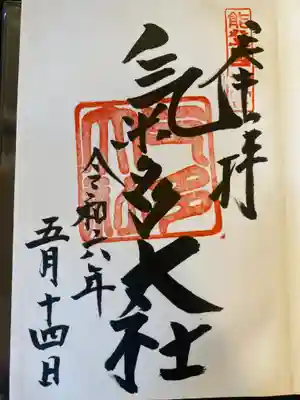 能登
奉拝
氣多大社
令和六年
五月十四日